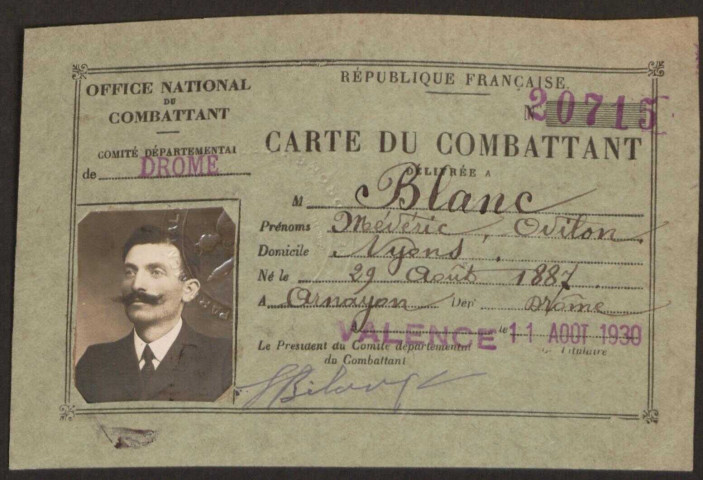 OFFICE NATIONAL
DU
COMBATTANT
COMITÉ DÉPARTEMENTAL
de DROME
RÉPUBLIQUE FRANÇAISE
N° 20715
CARTE DU COMBATTANT
DÉLIVRÉE A
M Blanc
Prénoms Médéric, Odilon
Domicile Nyons.
Né le 29 Août 1887
A Arnayon Dép^t Drôme
VALENCE le 11 AOUT 1930
Le Président du Comité départemental
du Combattant
Titulaire